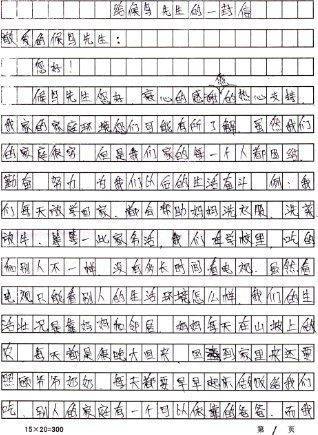 给候鸟先生的一封信
敬爱的候鸟先生：
您好！
候鸟先生您好，衷心的感谢您的热心支持
我家的家庭环境您们可能有所了解，虽然我们
的家庭很穷，但是我们家的每一个人都团结
勤奋、努力，为我们以后的生活奋斗，例：我
们每天放学回家，都会帮助妈妈洗衣服、洗菜
放牛、等等一此家务活，我们在学校里，吃的
和别人不一样，没有多长时间看电视，虽然看
电视只能看别人的生活环境怎么样，我们的生
活状况是靠妈妈和邻居，妈妈每天在山坡上的
农，每天都是很晚才回来，回到家里来还要
照顾爷爷奶奶，每天都要早早起来做饭给我们
吃，别人的家庭有一个可以依靠的爸爸，而我
15×20=300
第 1 页